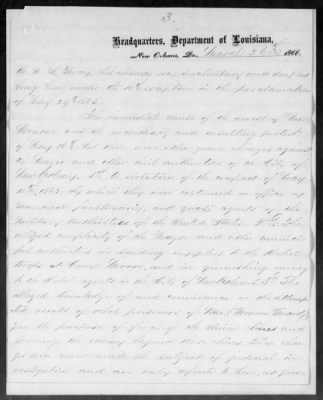 3.
Headquarters, Department of Louisiana,
New Orleans, La., March 26th 1866.
the U. S. Army, his residence was involuntary and does not
bring him under the exception in the proclamation
of May 29 1865.
The immediate cause of the arrest of
Monroe was the incendiary and insulting protest
of May but there were other grave charges against
the Mayor and other civil authorities of the City of
New Orleans, 1st. A violation of the compact of May
1st 1862, by which they were continued in office as
municipal functionaries, and quasi agents of the
Military Authorities of the United States. 2nd. The
alleged complicity of the Mayor and other munici-
pal authorities in sending supplies to the Rebel
troops at Camp Moore, and in furnishing money
to the Rebel agents in the City of New Orleans. 3rd. The
alleged knowledge of and connivance in the attemp-
ted revolt of rebel prisoners of War, (Monroe Guards)
for the purpose of forcing the Union lines and
joining the enemy beyond these lines. These char-
ges were never made the subject of judicial in-
vestigation and are only referred to here as